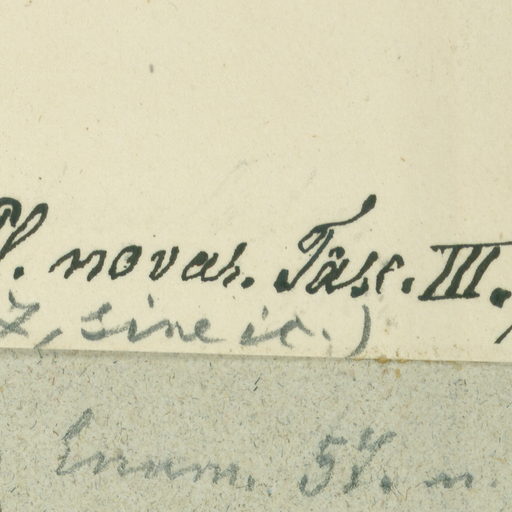 Pl. novas. Fasc. III.,
7, sine ic.)
Enum. 57. n.